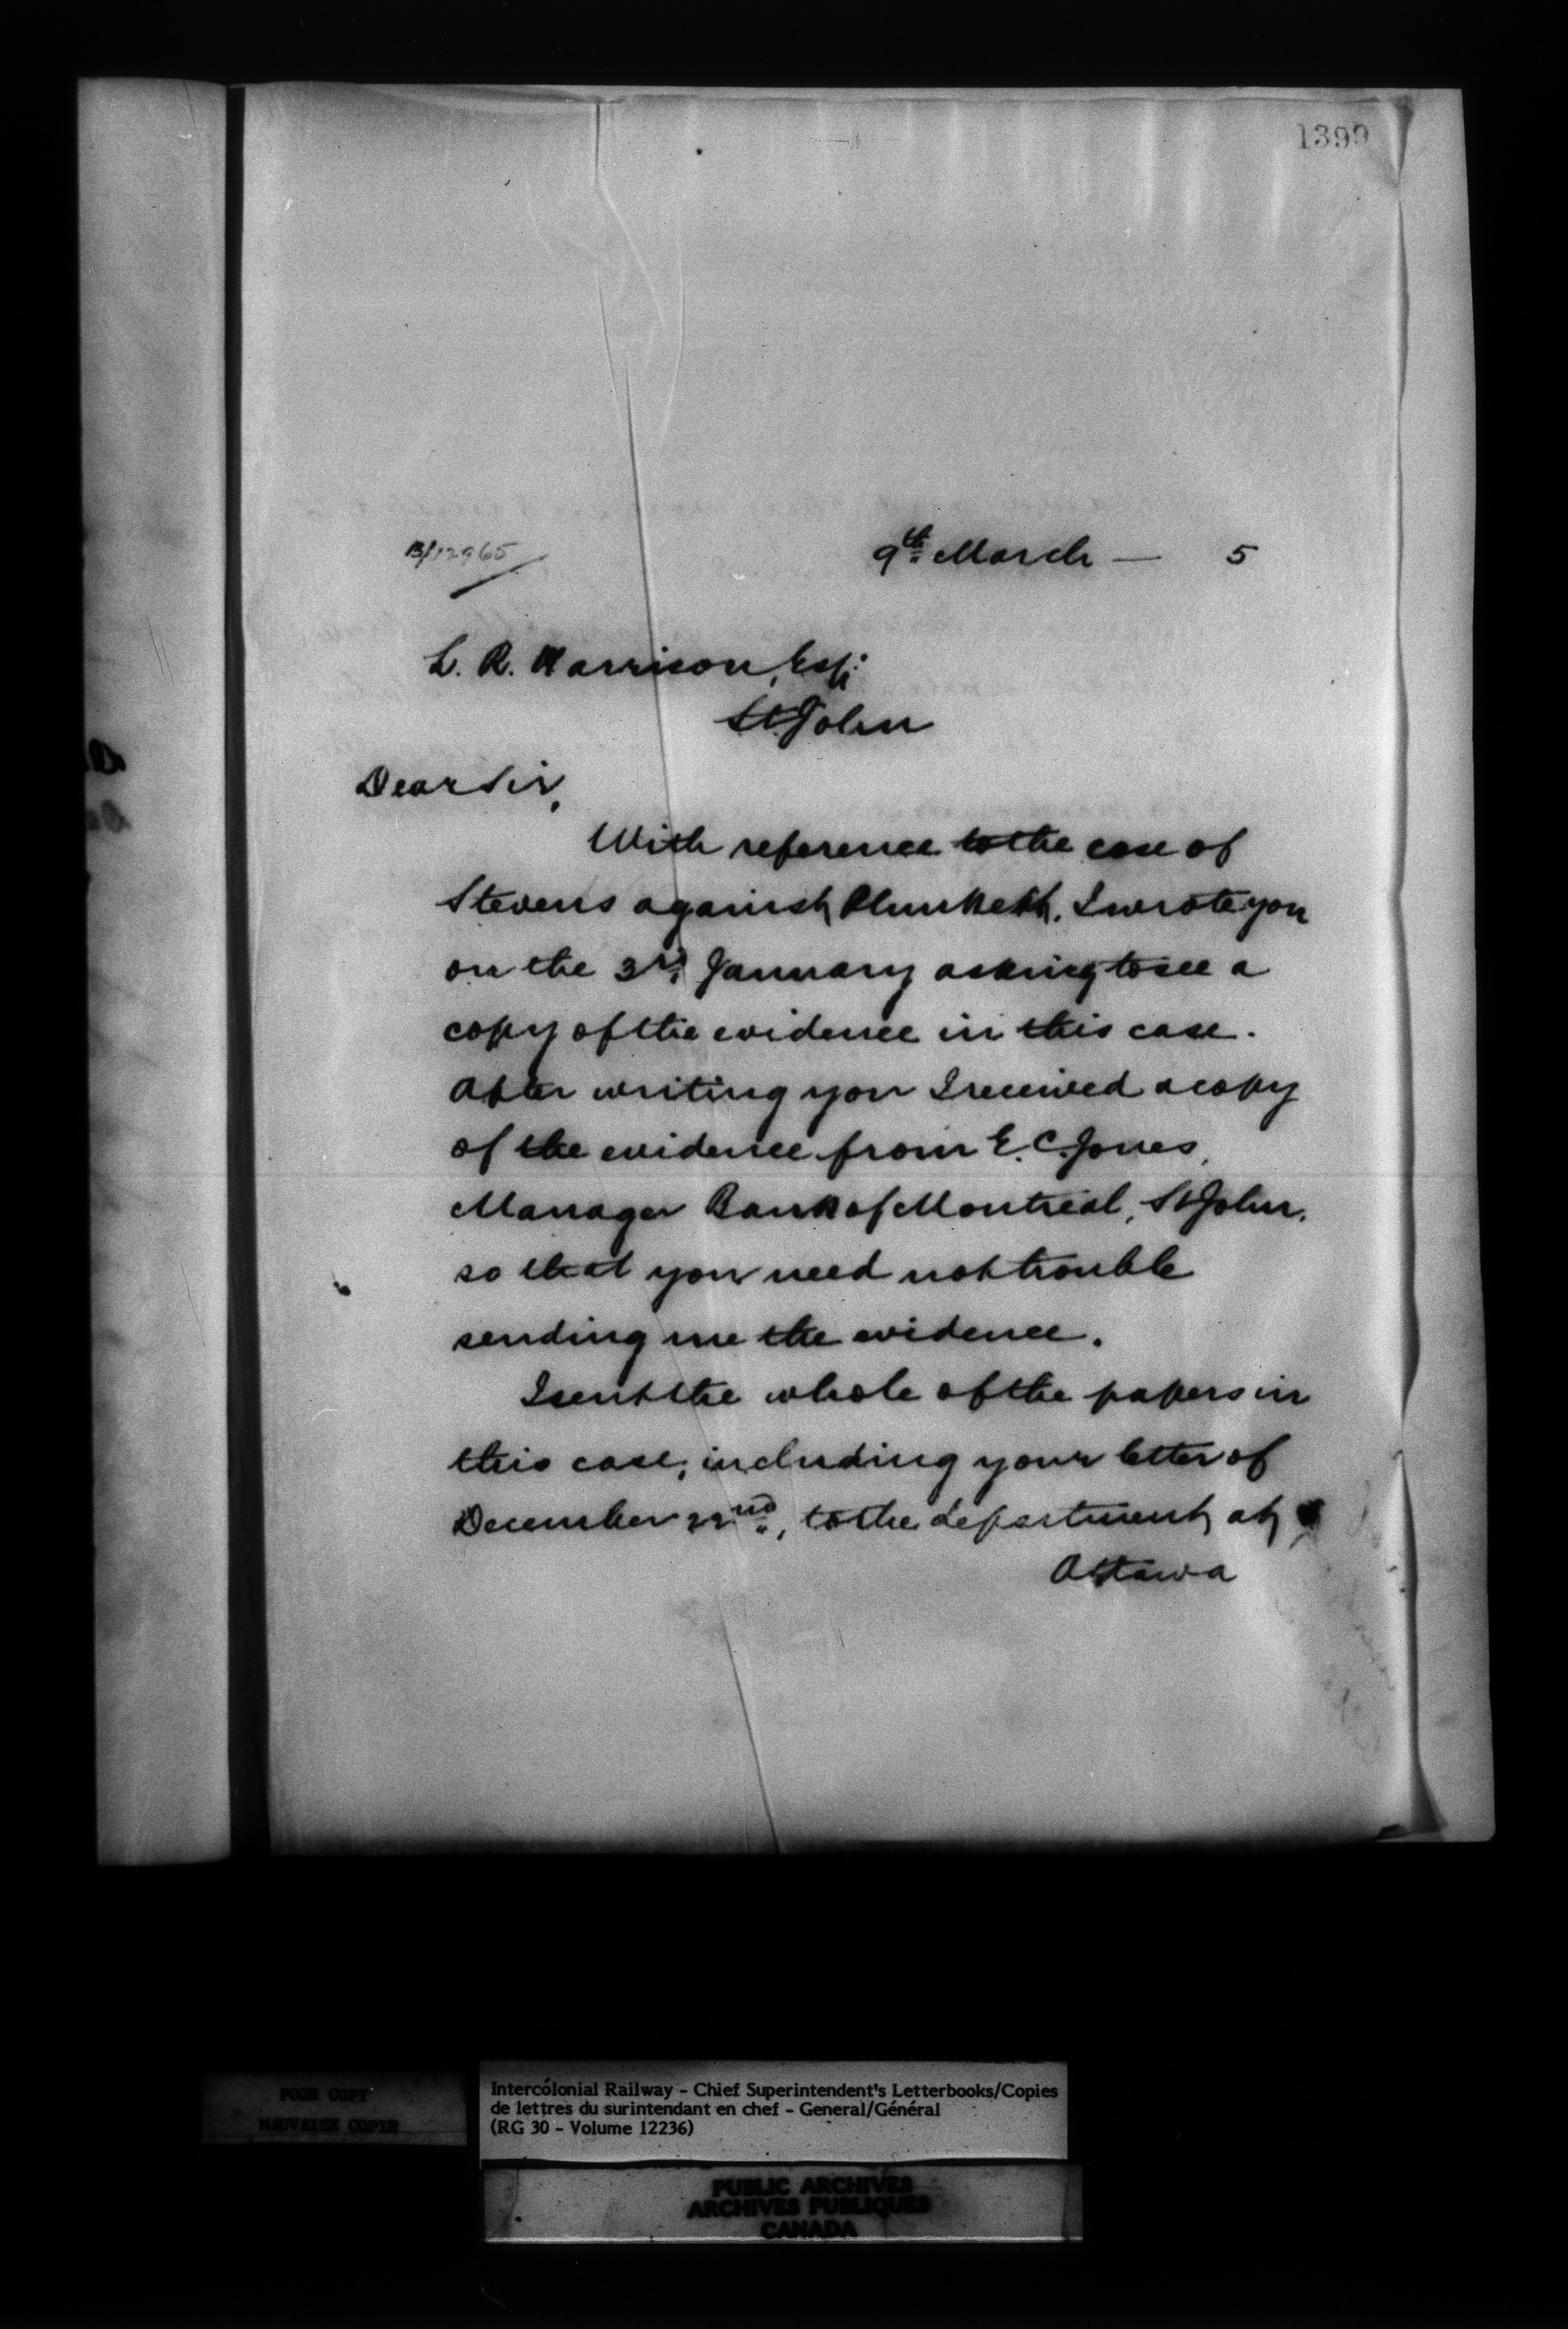 1399
B/12965
9th March — 5
L. R. Harrison, Esq:
St John
Dear Sir,
With reference to the case of
Stevens against Plunkett. I wrote you
on the 3rd January asking to see a
copy of the evidence in this case.
After writing you I received a copy
of the evidence from E. C. Jones,
Manager Bank of Montreal, St John,
so that you need not trouble
sending me the evidence.
I sent the whole of the papers in
this case, including your letter of
December 22nd, to the department at
Ottawa
POOR COPY
MAUVAISE COPIE
Intercolonial Railway - Chief Superintendent's Letterbooks/Copies
de lettres du surintendant en chef - General/Général
(RG 30 - Volume 12236)
PUBLIC ARCHIVES
ARCHIVES PUBLIQUES
CANADA